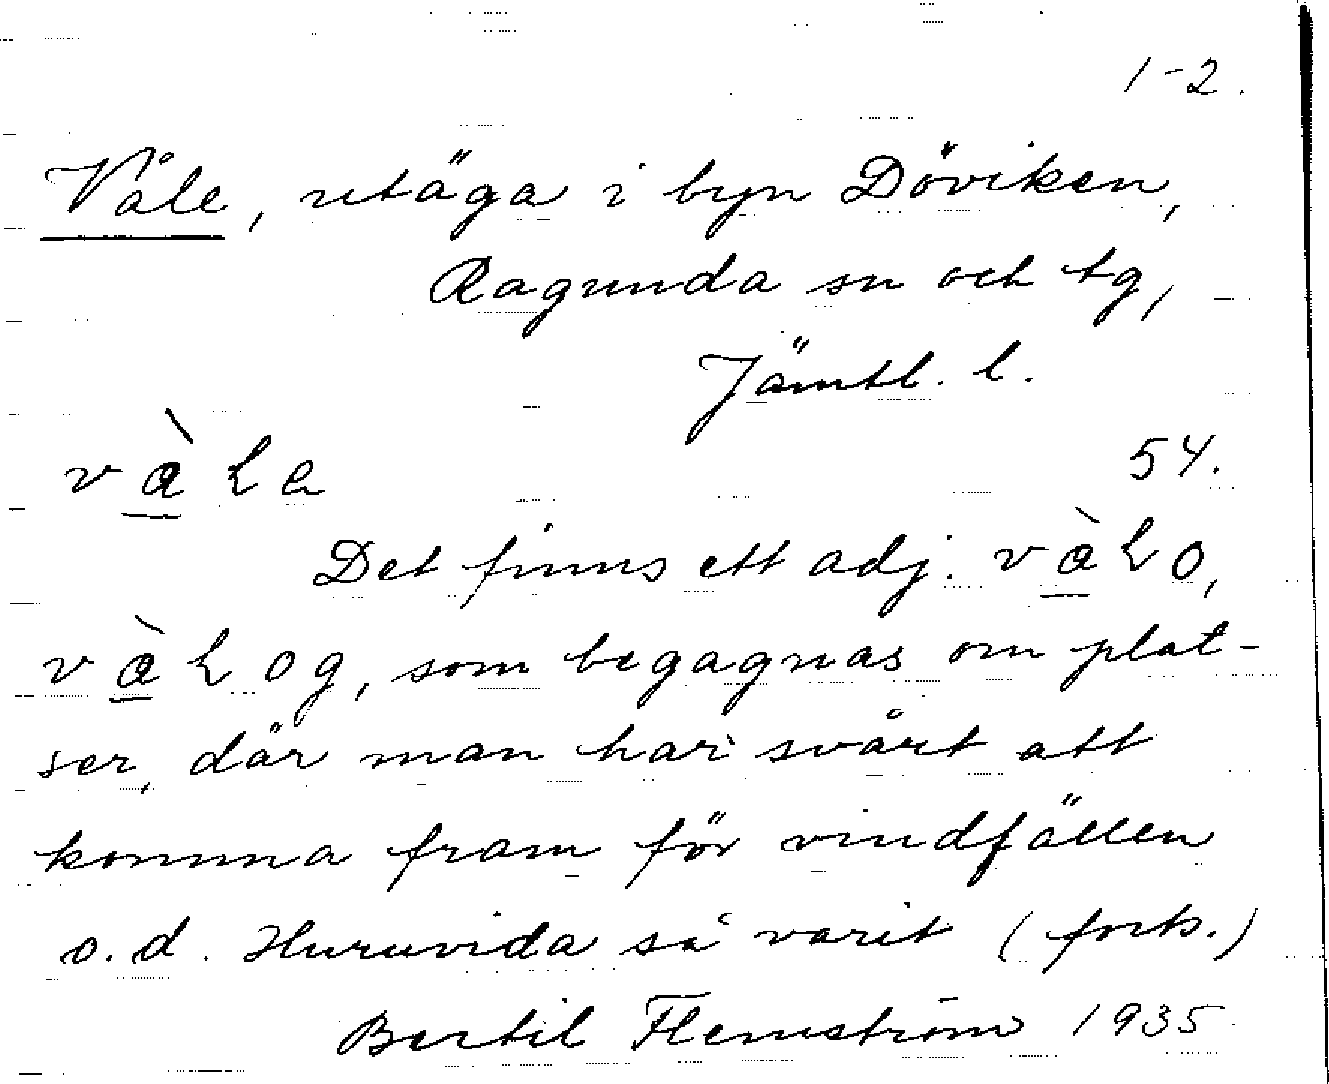 1-2.
Våle, utäga i byn Döviken,
Ragunda sn och tg,
Jämtl. l.
v à L e 54.
Det finns ett adj. v à L o,
v à L o g, som begagnas om plat-
ser, där man har svårt att
komma fram för vindfällen
o.d. Huruvida så varit (forts.)
Bertil Flemström 1935